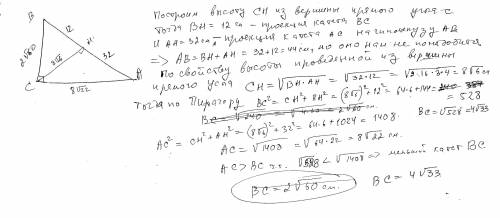 B
12
H
2√60
8√6
32
C
8√22
A
Построим высоту CH из вершины прямого угла C
тогда BH = 12 см - проекция катета BC
и AH = 32 см - проекция катета AC на гипотенузу AB
=> AB = BH + AH = 32 + 12 = 44 см, но оно нам не понадобится
По свойству высоты проведенной из вершины
прямого угла CH = √BH·AH = √32·12 = √2·16·3·4 = 8√6 см
тогда по Пифагору BC² = CH² + BH² = (8√6)² + 12² = 64·6 + 144 =
= 528
BC = √528 = 4√33
AC² = CH² + AH² = (8√6)² + 32² = 64·6 + 1024 = 1408
AC = √1408 = √64·22 = 8√22 см.
AC > BC т.к. √528 < √1408 => меньший катет BC
BC = 2√60 см.
BC = 4√33